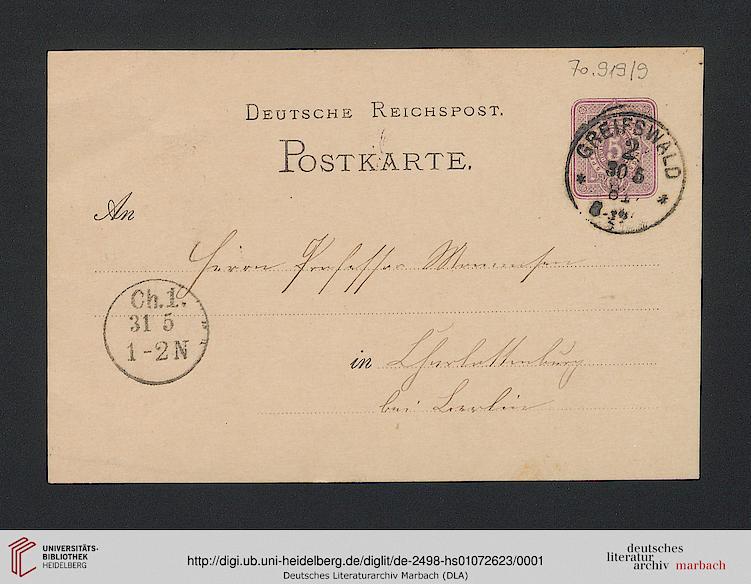 70.919/9
DEUTSCHE REICHSPOST.
POSTKARTE.
GREIFSWALD
2
30 5
81
5
An
Herrn Professor Mommsen
Ch.1.
31 5
1-2N
in Charlottenburg
bei Berlin
UNIVERSITÄTS-
BIBLIOTHEK
HEIDELBERG
http://digi.ub.uni-heidelberg.de/diglit/de-2498-hs01072623/0001
Deutsches Literaturarchiv Marbach (DLA)
deutsches
literatur
archiv marbach